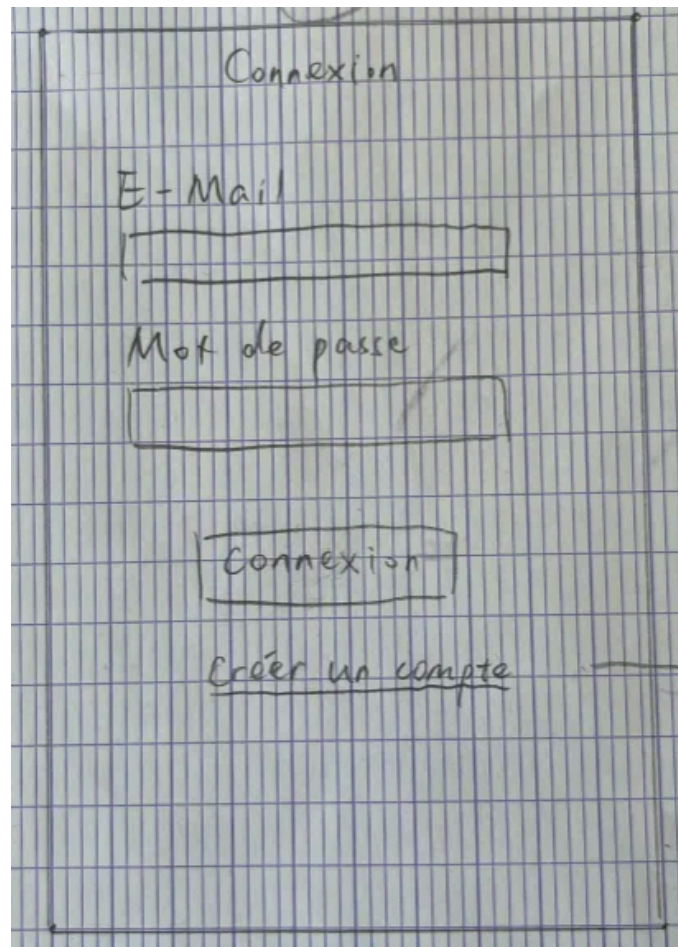 Connexion
E-Mail
Mot de passe
Connexion
Créer un compte